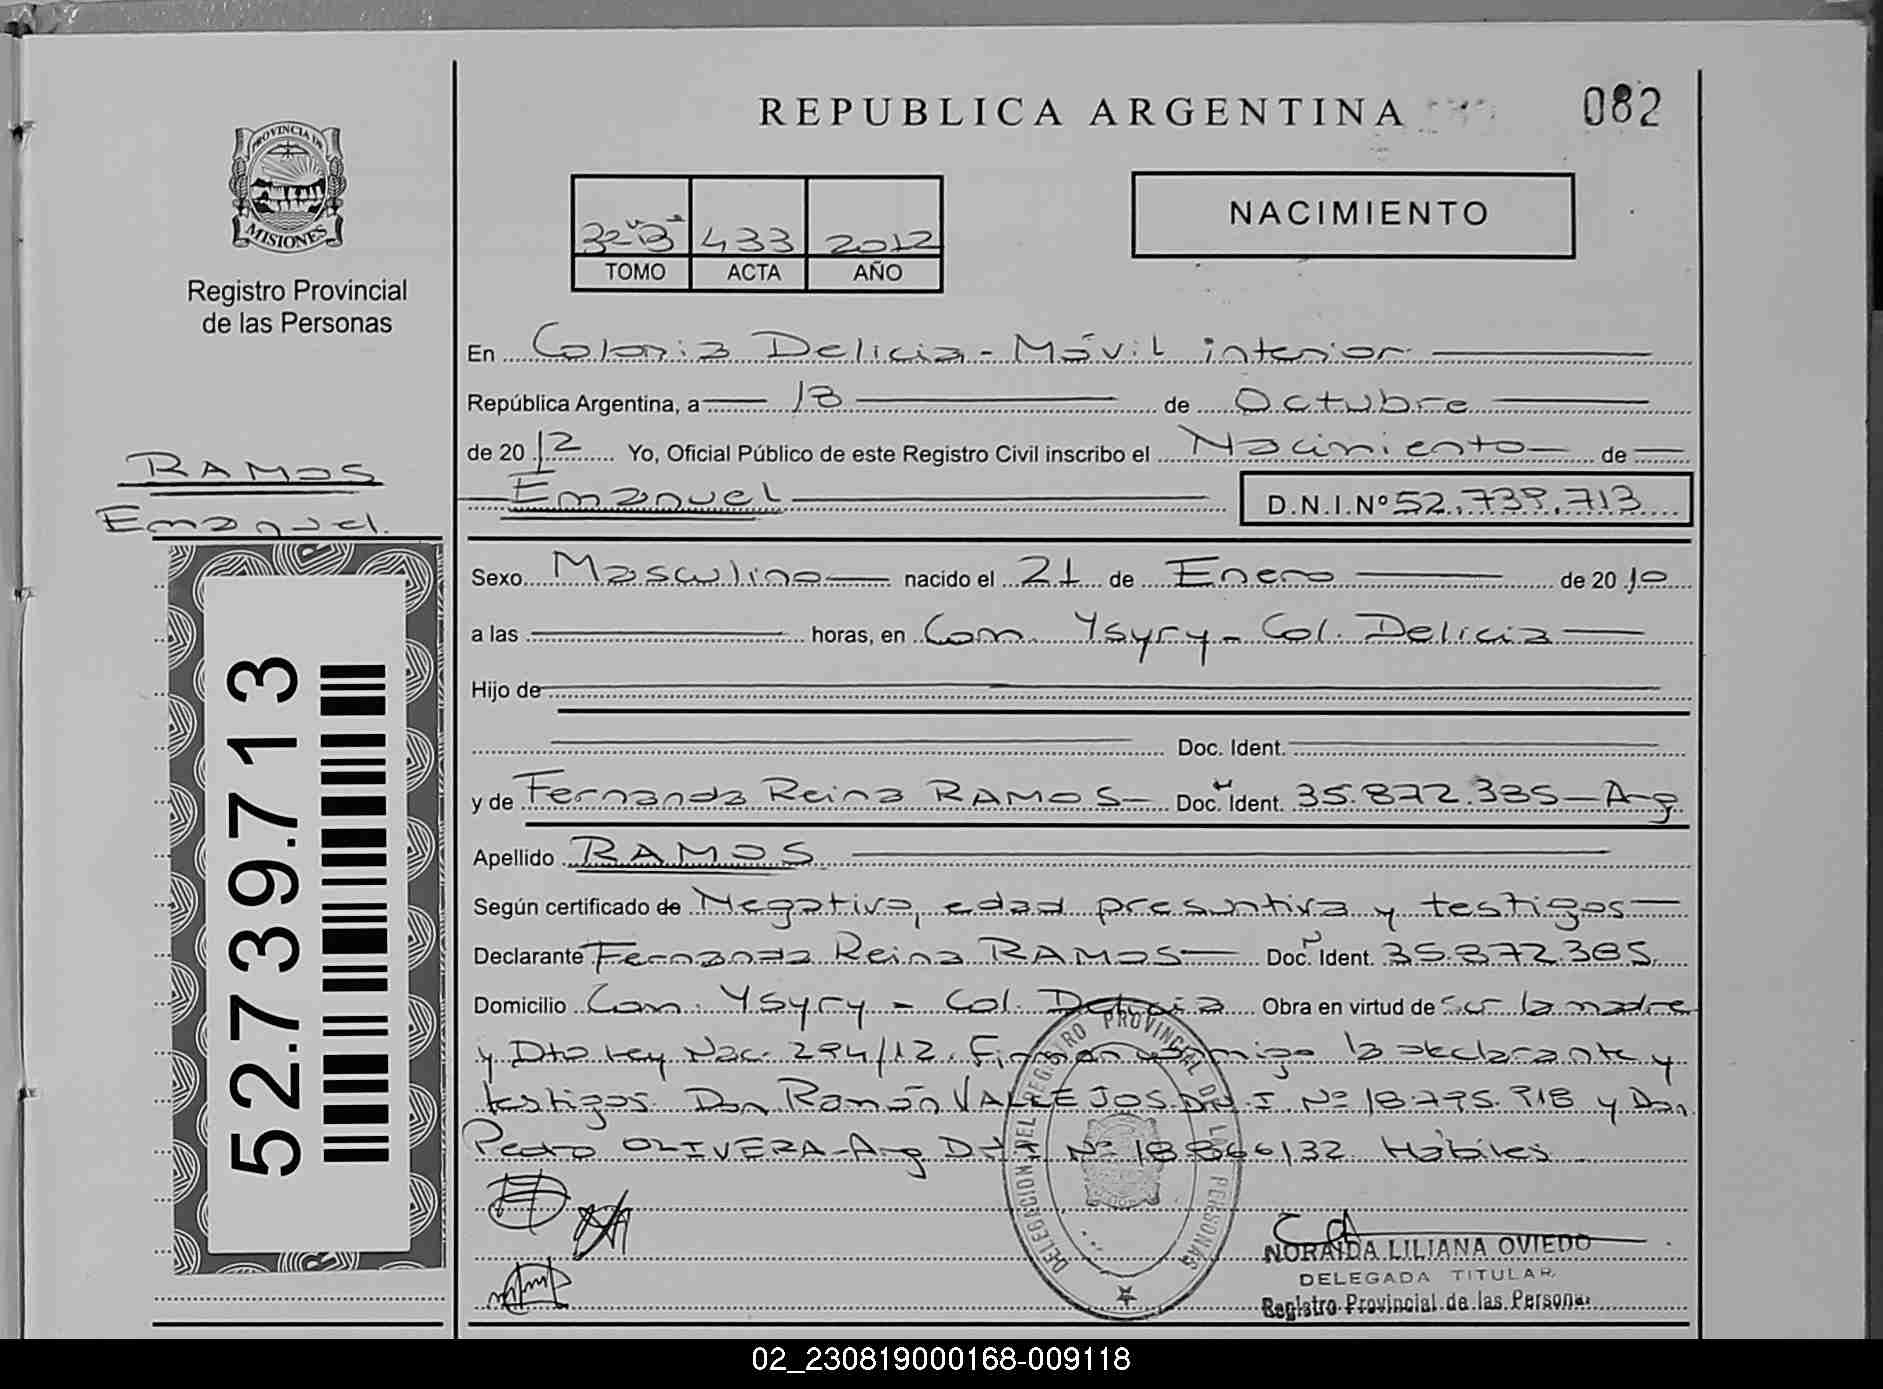 REPUBLICA ARGENTINA
082
PROVINCIA DE
MISIONES
Registro Provincial
de las Personas
NACIMIENTO
433 2012
TOMO ACTA AÑO
En Colonia Delicia - Móvil interior
República Argentina, a 13 de Octubre
de 2012 Yo, Oficial Público de este Registro Civil inscribo el Nacimiento de
RAMOS
Emanuel.
Emanuel D.N.I.Nº 52.739.713
Sexo Masculino nacido el 21 de Enero de 2010
a las horas, en Com. Ysyry - Col. Delicia
Hijo de
Doc. Ident.
y de Fernanda Reina RAMOS Doc. Ident. 35.872.385 - Arg.
Apellido RAMOS
Según certificado de Negativo, edad presuntiva y testigos
Declarante Fernanda Reina RAMOS Doc. Ident. 35.872.385.
Domicilio Com. Ysyry - Col. Delicia Obra en virtud de ser la madre
y Dto Ley Nac. 294/12. Firman conmigo la declarante y
testigos Don Ramón VALLEJOS D.N.I Nº 18.795.918 y Don
Pedro OLIVERA - Arg D.N.I Nº 18.866.132 Hábiles.
52.739.713
DELEGACION DEL REGISTRO PROVINCIAL DE LAS PERSONAS
NORAIDA LILIANA OVIEDO
DELEGADA TITULAR
Registro Provincial de las Personas
02_230819000168-009118